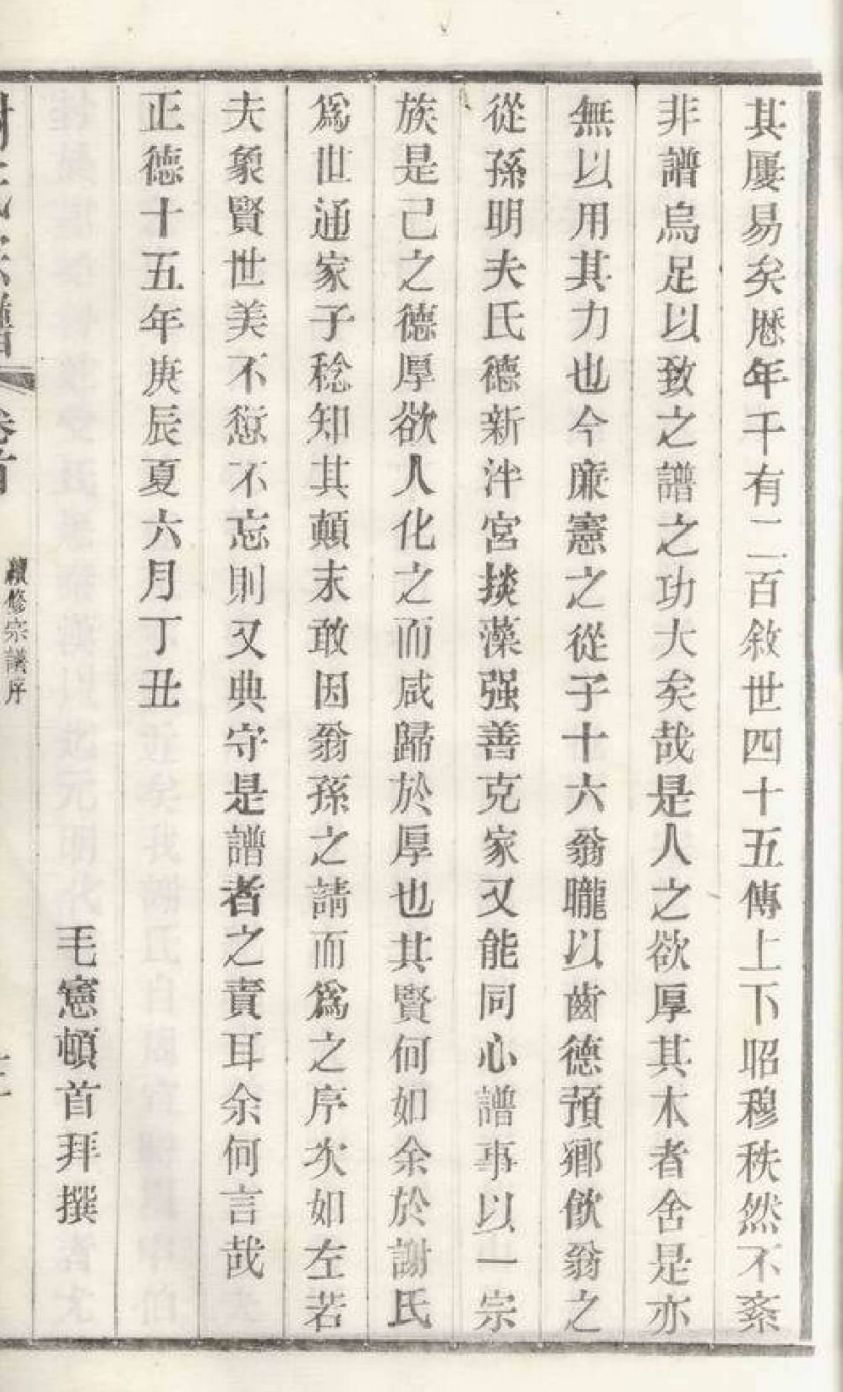 其屢易矣歴年千有二百敘世四十五傳上下昭穆秩然不紊
非譜烏足以致之譜之功大矣哉是人之欲厚其本者舍是亦
無以用其力也今廉憲之從子十六翁曨以齒德預鄉飲翁之
從孫明夫氏德新泮宮掞藻强善克家又能同心譜事以一宗
族是己之德厚欲人化之而咸歸於厚也其賢何如余於謝氏
爲世通家子稔知其顛末敢因翁孫之請而爲之序次如左若
夫象賢世美不愆不忘則又典守是譜者之責耳余何言哉
正德十五年庚辰夏六月丁丑
毛憲頓首拜撰
謝氏宗譜 卷首 續修宗譜序